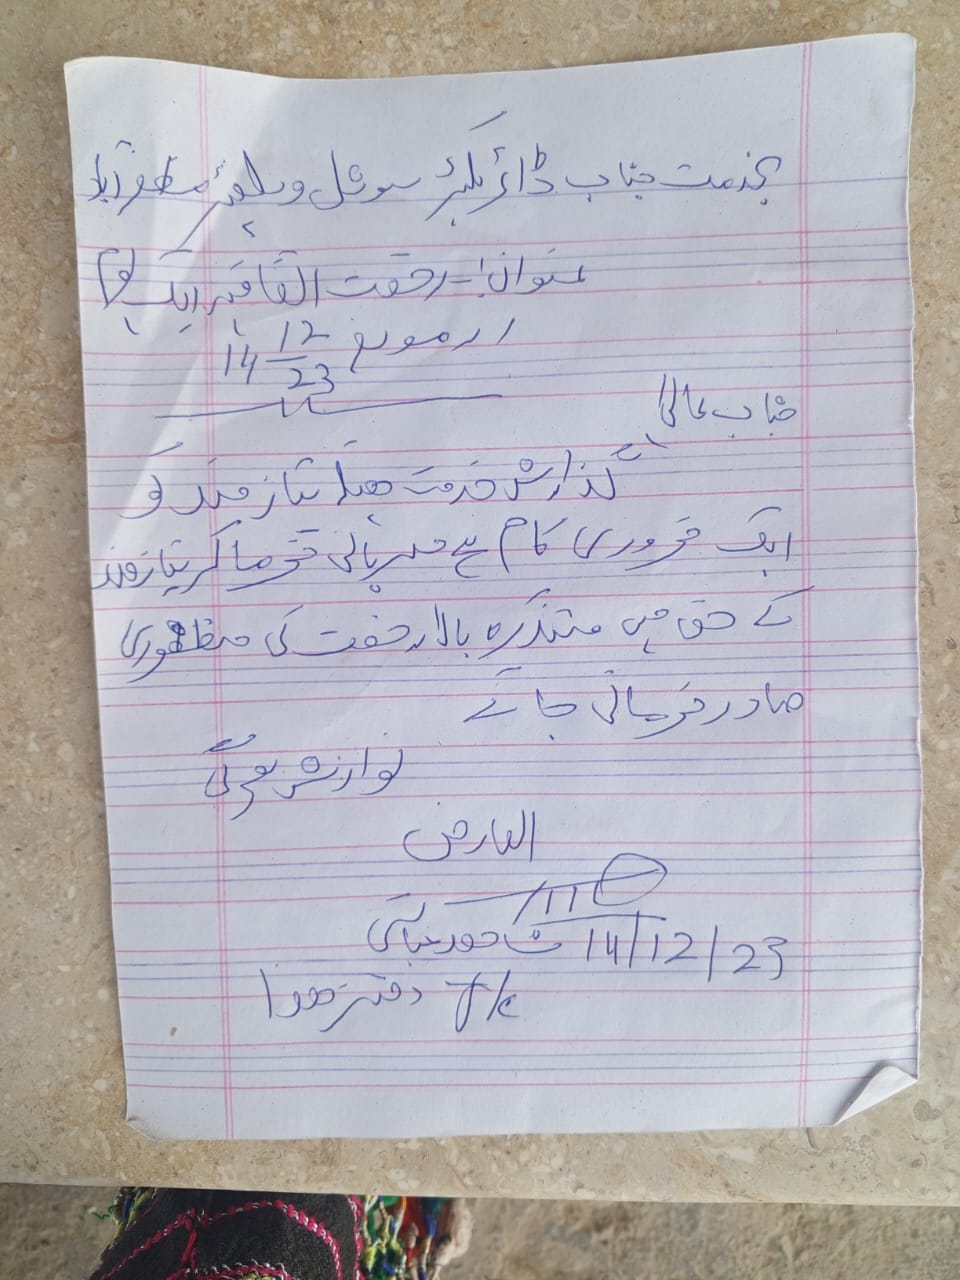 بخدمت جناب ڈائریکٹر سوشل ویلفیئر مظفرآباد
عنوان:- رخصت اتفاقیہ ایک یوم
از مورخہ 14/12/23
جناب عالی!
گذارش خدمت ہیکہ نیازمند کو
ایک ضروری کام ہے مہربانی فرما کر نیازمند
کے حق میں متذکرہ بالا رخصت کی منظوری
صادر فرمائی جائے
نوازش ہوگی
العارض
14/12/23
دفتر ھذا